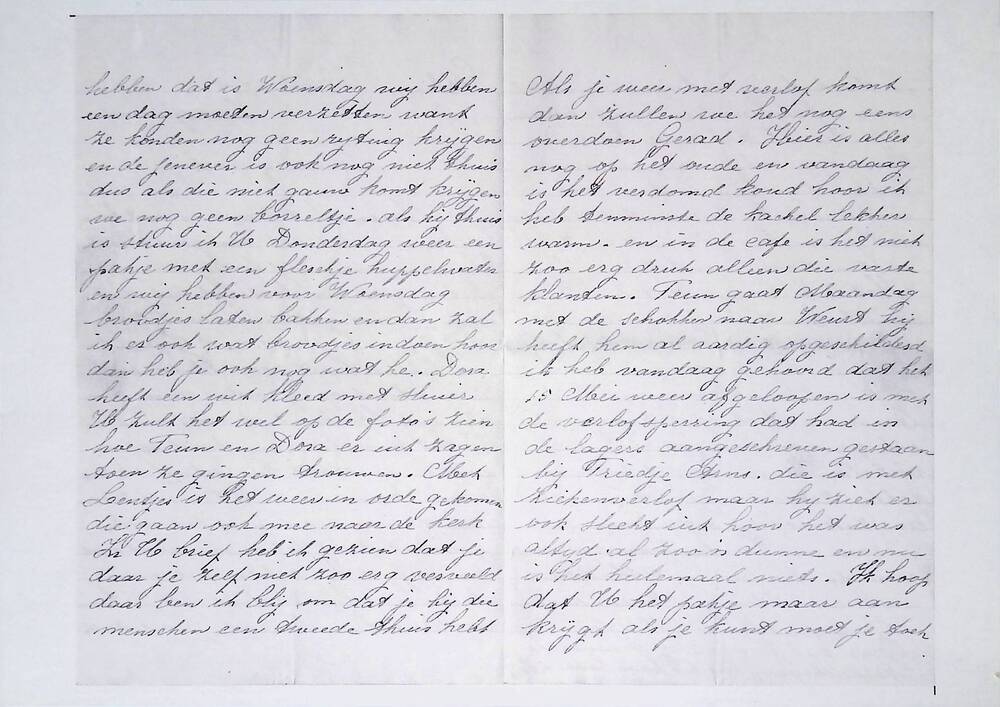 hebben dat is Woensdag wij hebben
een dag moeten verzetten want
ze konden nog geen rijtuig krijgen
en de jenever is ook nog niet thuis
dus als die niet gauw komt krijgen
we nog geen borreltje. als hij thuis
is stuur ik U Donderdag weer een
pakje met een fleschje huppelwater
en wij hebben voor Woensdag
broodjes laten bakken en dan zal
ik er ook wat broodjes in doen hoor
dan heb je ook nog wat he. Dora
heeft een wit kleed met sluier
U zult het wel op de foto's zien
hoe Teun en Dora er uit zagen
toen ze gingen trouwen. Met
Lentjes is het weer in orde gekomen
die gaan ook mee naar de kerk
In U brief heb ik gezien dat je
daar je zelf niet zoo erg verveeld
daar ben ik blij om dat je bij die
menschen een tweede thuis hebt
Als je weer met verlof komt
dan zullen we het nog eens
overdoen Gerad. Hier is alles
nog op het oude en vandaag
is het verdomd koud hoor ik
heb tenminste de kachel lekker
warm. en in de cafe is het niet
zoo erg druk alleen die vaste
klanten. Teun gaat Maandag
met de schokker naar Weurt hij
heeft hem al aardig opgeschilderd
ik heb vandaag gehoord dat het
15 Mei weer afgeloopen is met
de verlofsperring dat had in
de lagers aangeschreven gestaan
bij Friedje Arns. die is met
ziekenverlof maar hij ziet er
ook slecht uit hoor het was
altyd al zoo'n dunne en nu
is het heelemaal niets. Ik hoop
dat U het pakje maar aan
krijgt als je kunt moet je toch